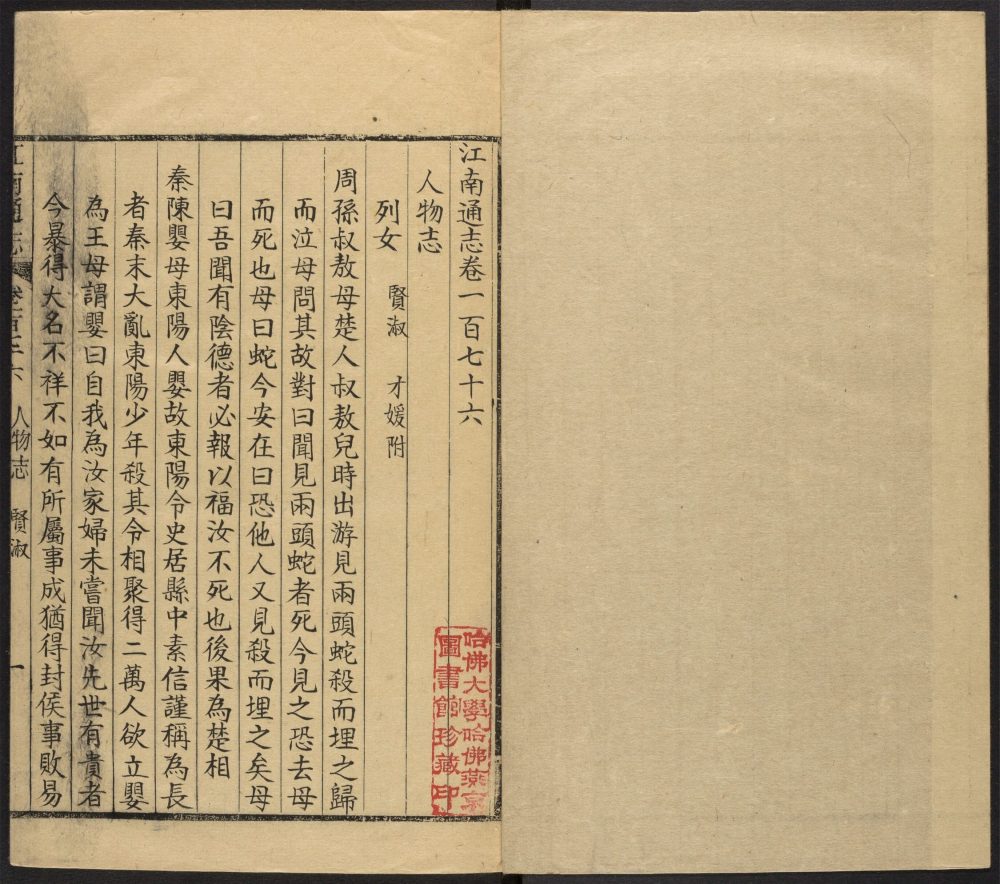 江南通志卷一百七十六
人物志
列女 賢淑 才媛附
周孫叔敖母楚人叔敖兒時出游見兩頭蛇殺而埋之歸
而泣母問其故對曰聞見兩頭蛇者死今見之恐去母
而死也母曰蛇今安在曰恐他人又見殺而埋之矣母
曰吾聞有陰德者必報以福汝不死也後果為楚相
秦陳嬰母東陽人嬰故東陽令史居縣中素信謹稱為長
者秦末大亂東陽少年殺其令相聚得二萬人欲立嬰
為王母謂嬰曰自我為汝家婦未嘗聞汝先世有貴者
今暴得大名不祥不如有所屬事成猶得封侯事敗易
江南通志 人物志 賢淑 一
哈佛大學哈佛燕京
圖書館珍藏印